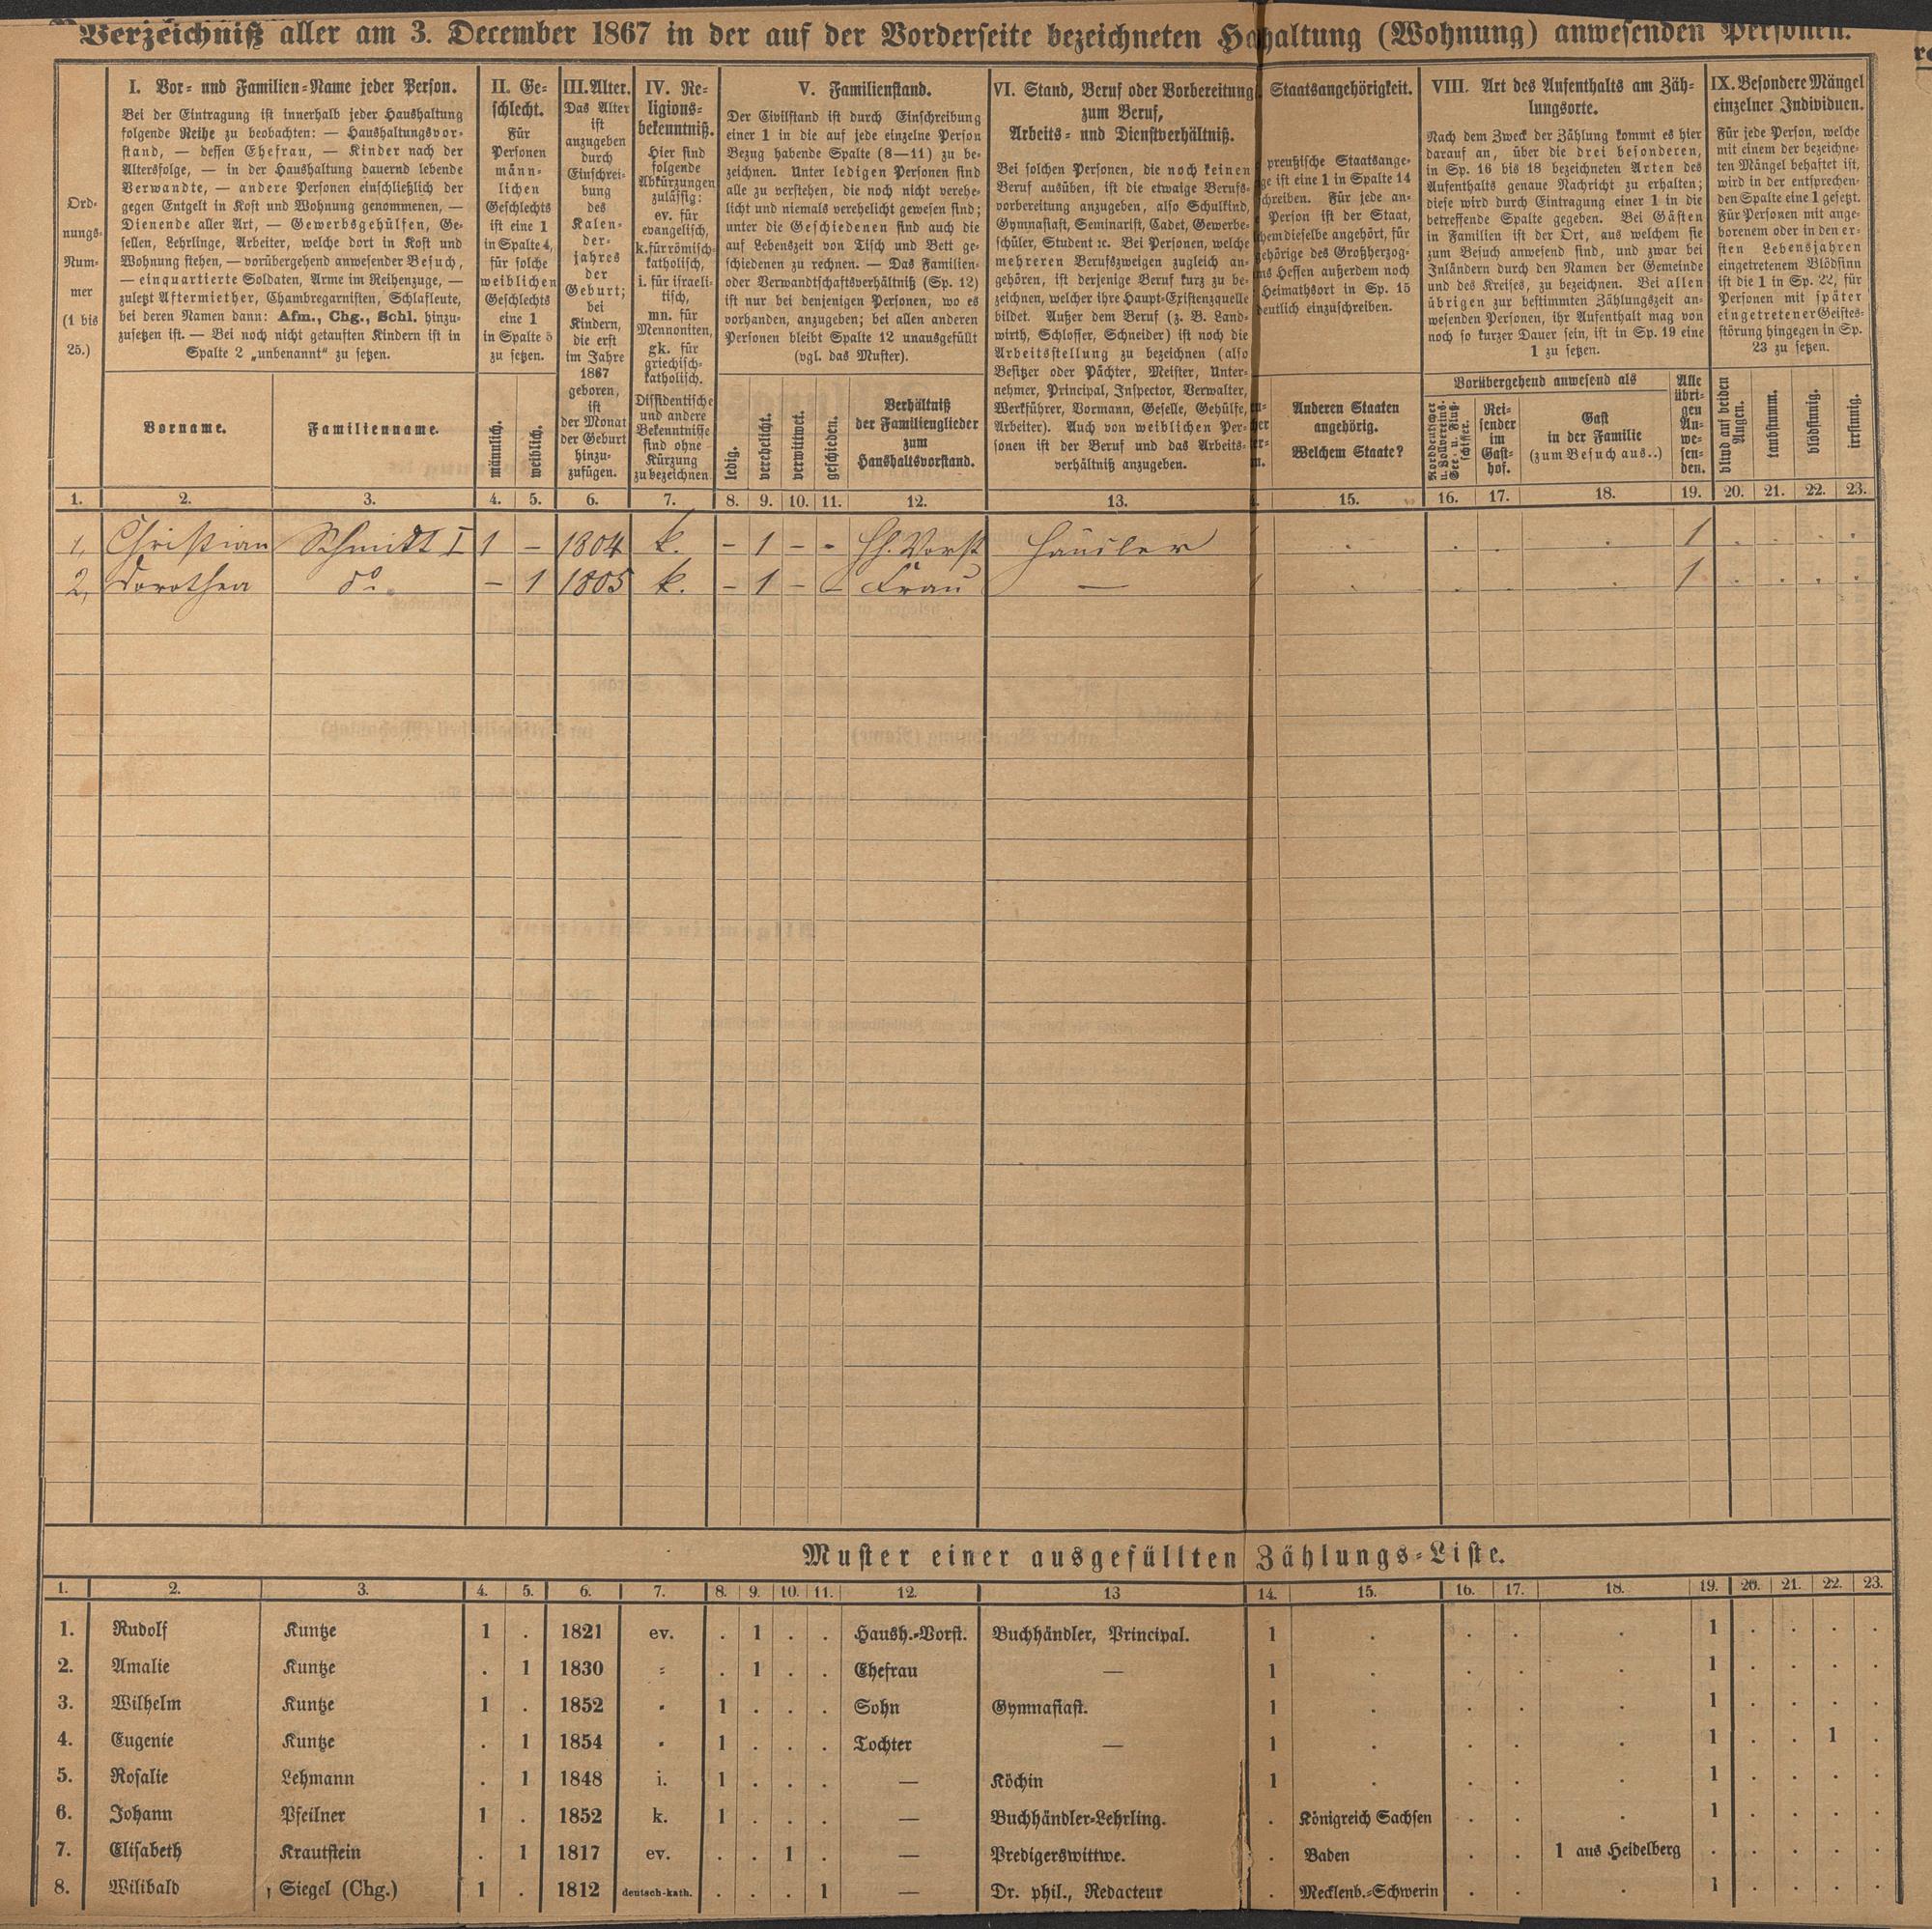 Verzeichniß aller am 3. December 1867 in der auf der Vorderseite bezeichneten Haushaltung (Wohnung) anwesenden Personen.
Ord-
nungs-
Num-
mer
(1 bis
25.)
I. Vor- und Familien-Name jeder Person.
Bei der Eintragung ist innerhalb jeder Haushaltung
folgende Reihe zu beobachten: — Haushaltungsvor-
stand, — dessen Ehefrau, — Kinder nach der
Altersfolge, — in der Haushaltung dauernd lebende
Verwandte, — andere Personen einschließlich der
gegen Entgelt in Kost und Wohnung genommenen, —
Dienende aller Art, — Gewerbsgehülfen, Ge-
sellen, Lehrlinge, Arbeiter, welche dort in Kost und
Wohnung stehen, — vorübergehend anwesender Besuch,
— einquartierte Soldaten, Arme im Reihenzuge, —
zuletzt Aftermiether, Chambregarnisten, Schlafleute,
bei deren Namen dann: Afm., Chg., Schl. hinzu-
zusetzen ist. — Bei noch nicht getauften Kindern ist in
Spalte 2 „unbenannt“ zu setzen.
Vorname.
Familienname.
II. Ge-
schlecht.
Für
Personen
männ-
lichen
Geschlechts
ist eine 1
in Spalte 4,
für solche
weiblichen
Geschlechts
eine 1
in Spalte 5
zu setzen.
männlich.
weiblich.
III. Alter.
Das Alter
ist
anzugeben
durch
Einschrei-
bung
des
Kalen-
der-
jahres
der
Geburt;
bei
Kindern,
die erst
im Jahre
1867
geboren,
ist
der Monat
der Geburt
hinzu-
zufügen.
IV. Re-
ligions-
bekenntniß.
Hier sind
folgende
Abkürzungen
zulässig:
ev. für
evangelisch,
k. für römisch-
katholisch,
i. für israeli-
tisch,
mn. für
Mennoniten,
gk. für
griechisch-
katholisch.
Dissidentische
und andere
Bekenntnisse
sind ohne
Kürzung
zu bezeichnen.
V. Familienstand.
Der Civilstand ist durch Einschreibung
einer 1 in die auf jede einzelne Person
Bezug habende Spalte (8—11) zu be-
zeichnen. Unter ledigen Personen sind
alle zu verstehen, die noch nicht verehe-
licht und niemals verehelicht gewesen sind;
unter die Geschiedenen sind auch die
auf Lebenszeit von Tisch und Bett ge-
schiedenen zu rechnen. — Das Familien-
oder Verwandtschaftsverhältniß (Sp. 12)
ist nur bei denjenigen Personen, wo es
vorhanden, anzugeben; bei allen anderen
Personen bleibt Spalte 12 unausgefüllt
(vgl. das Muster).
ledig.
verehelicht.
verwittwet.
geschieden.
Verhältniß
der Familienglieder
zum
Haushaltsvorstand.
VI. Stand, Beruf oder Vorbereitung
zum Beruf,
Arbeits- und Dienstverhältniß.
Bei solchen Personen, die noch keinen
Beruf ausüben, ist die etwaige Berufs-
vorbereitung anzugeben, also Schulkind,
Gymnasiast, Seminarist, Cadet, Gewerbe-
schüler, Student ꝛc. Bei Personen, welche
mehreren Berufszweigen zugleich an-
gehören, ist derjenige Beruf kurz zu be-
zeichnen, welcher ihre Haupt-Existenzquelle
bildet. Außer dem Beruf (z. B. Land-
wirth, Schlosser, Schneider) ist noch die
Arbeitsstellung zu bezeichnen (also
Besitzer oder Pächter, Meister, Unter-
nehmer, Principal, Inspector, Verwalter,
Werkführer, Vormann, Geselle, Gehülfe,
Arbeiter). Auch von weiblichen Per-
sonen ist der Beruf und das Arbeits-
verhältniß anzugeben.
Staatsangehörigkeit.
preußische Staatsange-
ge ist eine 1 in Spalte 14
schreiben. Für jede an-
Person ist der Staat,
chem dieselbe angehört, für
gehörige des Großherzog-
ms Hessen außerdem noch
Heimathsort in Sp. 15
deutlich einzuschreiben.
Anderen Staaten
angehörig.
Welchem Staate?
VIII. Art des Aufenthalts am Zäh-
lungsorte.
Nach dem Zweck der Zählung kommt es hier
darauf an, über die drei besonderen,
in Sp. 16 bis 18 bezeichneten Arten des
Aufenthalts genaue Nachricht zu erhalten;
diese wird durch Eintragung einer 1 in die
betreffende Spalte gegeben. Bei Gästen
in Familien ist der Ort, aus welchem sie
zum Besuch anwesend sind, und zwar bei
Inländern durch den Namen der Gemeinde
und des Kreises, zu bezeichnen. Bei allen
übrigen zur bestimmten Zählungszeit an-
wesenden Personen, ihr Aufenthalt mag von
noch so kurzer Dauer sein, ist in Sp. 19 eine
1 zu setzen.
Vorübergehend anwesend als
Norddeutscher
u. Zollvereins-
See- u. Fluß-
schiffer.
Rei-
sender
im
Gast-
hof.
Gast
in der Familie
(zum Besuch aus..)
Alle
übri-
gen
An-
we-
sen-
den.
IX. Besondere Mängel
einzelner Individuen.
Für jede Person, welche
mit einem der bezeichne-
ten Mängel behaftet ist,
wird in der entsprechen-
den Spalte eine 1 gesetzt.
Für Personen mit ange-
borenem oder in den er-
sten Lebensjahren
eingetretenem Blödsinn
ist die 1 in Sp. 22, für
Personen mit später
eingetretener Geistes-
störung hingegen in Sp.
23 zu setzen.
blind auf beiden
Augen.
taubstumm.
blödsinnig.
irrsinnig.
1. 2. 3. 4. 5. 6. 7. 8. 9. 10. 11. 12. 13. 15. 16. 17. 18. 19. 20. 21. 22. 23.
1, Christian Schmidt I 1 – 1804 k. – 1 – – Hh. Vorst Häusler . . . . 1 . . . .
2, Dorothea do – 1 1805 k. – 1 – – Frau — . . . . 1 . . . .
Muster einer ausgefüllten Zählungs-Liste.
1. 2. 3. 4. 5. 6. 7. 8. 9. 10. 11. 12. 13 14. 15. 16. 17. 18. 19. 20. 21. 22. 23.
1. Rudolf Kuntze 1 . 1821 ev. . 1 . . Haush.-Vorst. Buchhändler, Principal. 1 . . . . 1 . . . .
2. Amalie Kuntze . 1 1830 „ . 1 . . Ehefrau — 1 . . . . 1 . . . .
3. Wilhelm Kuntze 1 . 1852 „ 1 . . . Sohn Gymnasiast. 1 . . . . 1 . . . .
4. Eugenie Kuntze . 1 1854 „ 1 . . . Tochter — 1 . . . . 1 . . 1 .
5. Rosalie Lehmann . 1 1848 i. 1 . . . — Köchin 1 . . . . 1 . . . .
6. Johann Pfeilner 1 . 1852 k. 1 . . . — Buchhändler-Lehrling. . Königreich Sachsen . . . 1 . . . .
7. Elisabeth Krautstein . 1 1817 ev. . . 1 . — Predigerswittwe. . Baden . . 1 aus Heidelberg . . . . .
8. Wilibald Siegel (Chg.) 1 . 1812 deutsch-kath. . . . 1 — Dr. phil., Redacteur . Mecklenb.-Schwerin . . . 1 . . . .